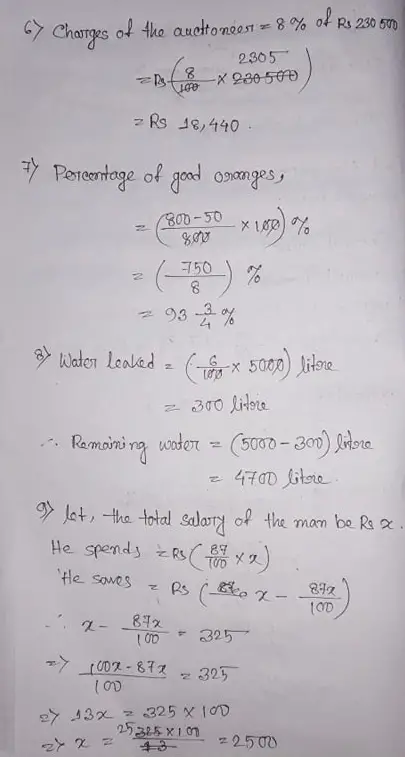 6) Charges of the auctioneer = 8% of Rs 230500
= Rs (8/100 × 230500) 2305
= Rs 18,440.
7) Percentage of good oranges,
= (800-50/800 × 100) %
= (750/8) %
= 93 3/4 %
8) Water leaked = (6/100 × 5000) litre
= 300 litre
∴ Remaining water = (5000-300) litre
= 4700 litre.
9) let, the total salary of the man be Rs x.
He spends = Rs (87/100 × x)
He saves = Rs (x - 87x/100)
∴ x - 87x/100 = 325
=> 100x-87x/100 = 325
=> 13x = 325 × 100
=> x = 25 325×100/13 = 2500